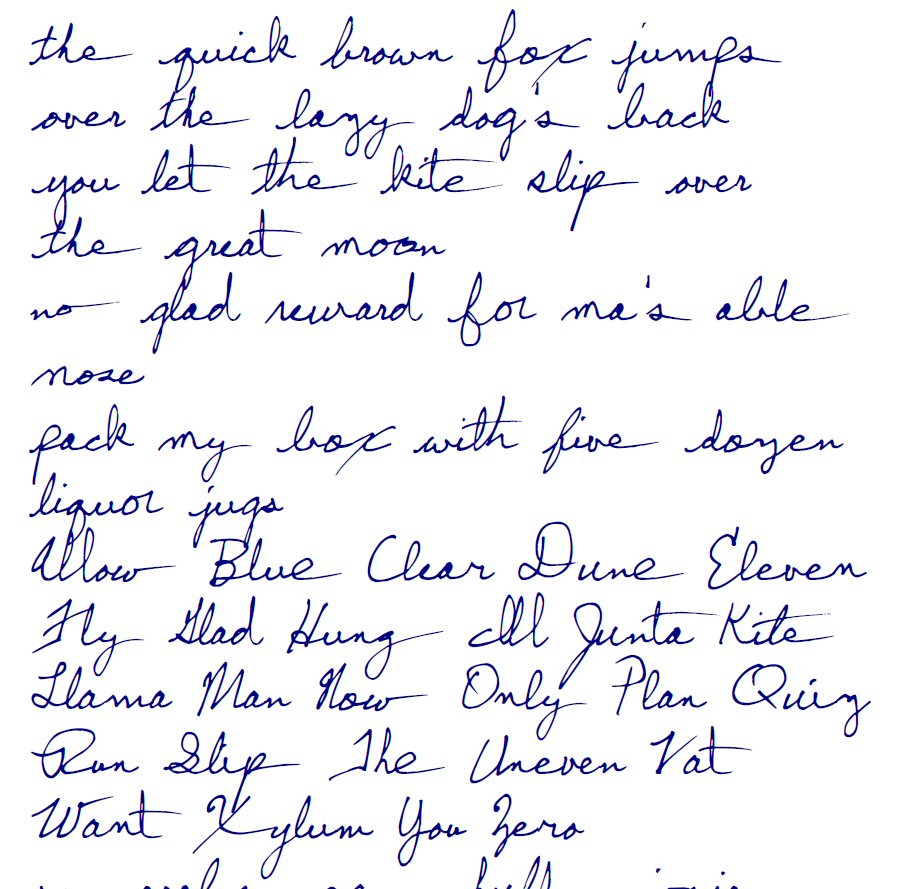 the quick brown fox jumps
over the lazy dog's back
you let the kite slip over
the great moon
no glad reward for ma's able
nose
pack my box with five dozen
liquor jugs
Allow Blue Clear Dune Eleven
Fly Glad Hung Ill Junta Kite
Llama Man Now Only Plan Quiz
Run Slip The Uneven Vat
Want Xylum You Zero